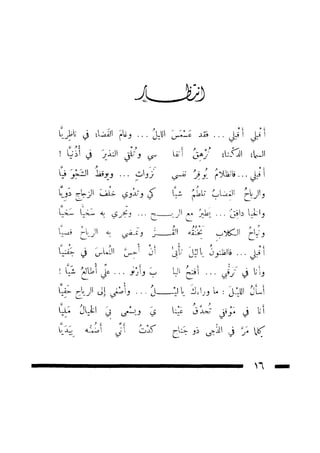 انتظار
أقبلي أقبلي ... فقد عسعس الليل ... وغام الفضاء في ناظريّا
السماء الدكناء تُرهق أنفا سي وتُلقي النذير في أذنيّا !
أقبلي ... فالظلام يُوقد نفسي نزوات ... ويوقظ الشجو فيّا
والرياح الغضاب تلطم شبا كي وتدوي خلف الزجاج دويّا
والحيا دافق ... يطير مع الريح ... وتجري به سخيّا سخيّا
ونُباح الكلاب يخنقه القُـر وتمضي به الرياح قصيّا
أقبلي ... فالظنون ياليل تأبى أن أحس النعاس في جفنيّا
وأنا في ترقّبي ... أفتح البا ب وأرنو ... علّي أطالع شيّا !
أسأل الليل : ما وراءك ياليـل ... وأصغي إلى الرياح حفيّا
أنا في موقفي تُحدّق عينا ي ويسعى بي الخيال مليّا
كلما مرّ في الدجى ذو جناح كدتُ أنّي أضمّه بيديّا
١٦